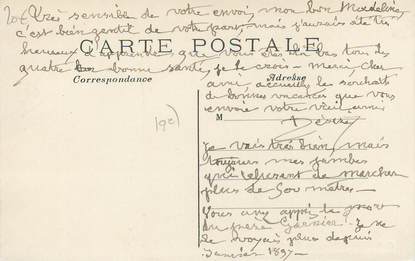 Très sensible de votre envoi, mon bon
c'est bien gentil de votre part, mais j'aurais été très
heureux d'apprendre que vous bien tous des
CARTE POSTALE
quatre bonne santé, je le crois — merci cher
Correspondance
Adresse
ami accueillez les souhaits
de bonnes vacances que vous
envoie votre vieil ami
M
Désiré
Je vais très bien, mais
toujours mes jambes
qui refusent de marcher
plus de 500 mètres —
Vous avez appris la mort
du père Garnier! Je ne
le voyais plus depuis
Janvier 1897 —